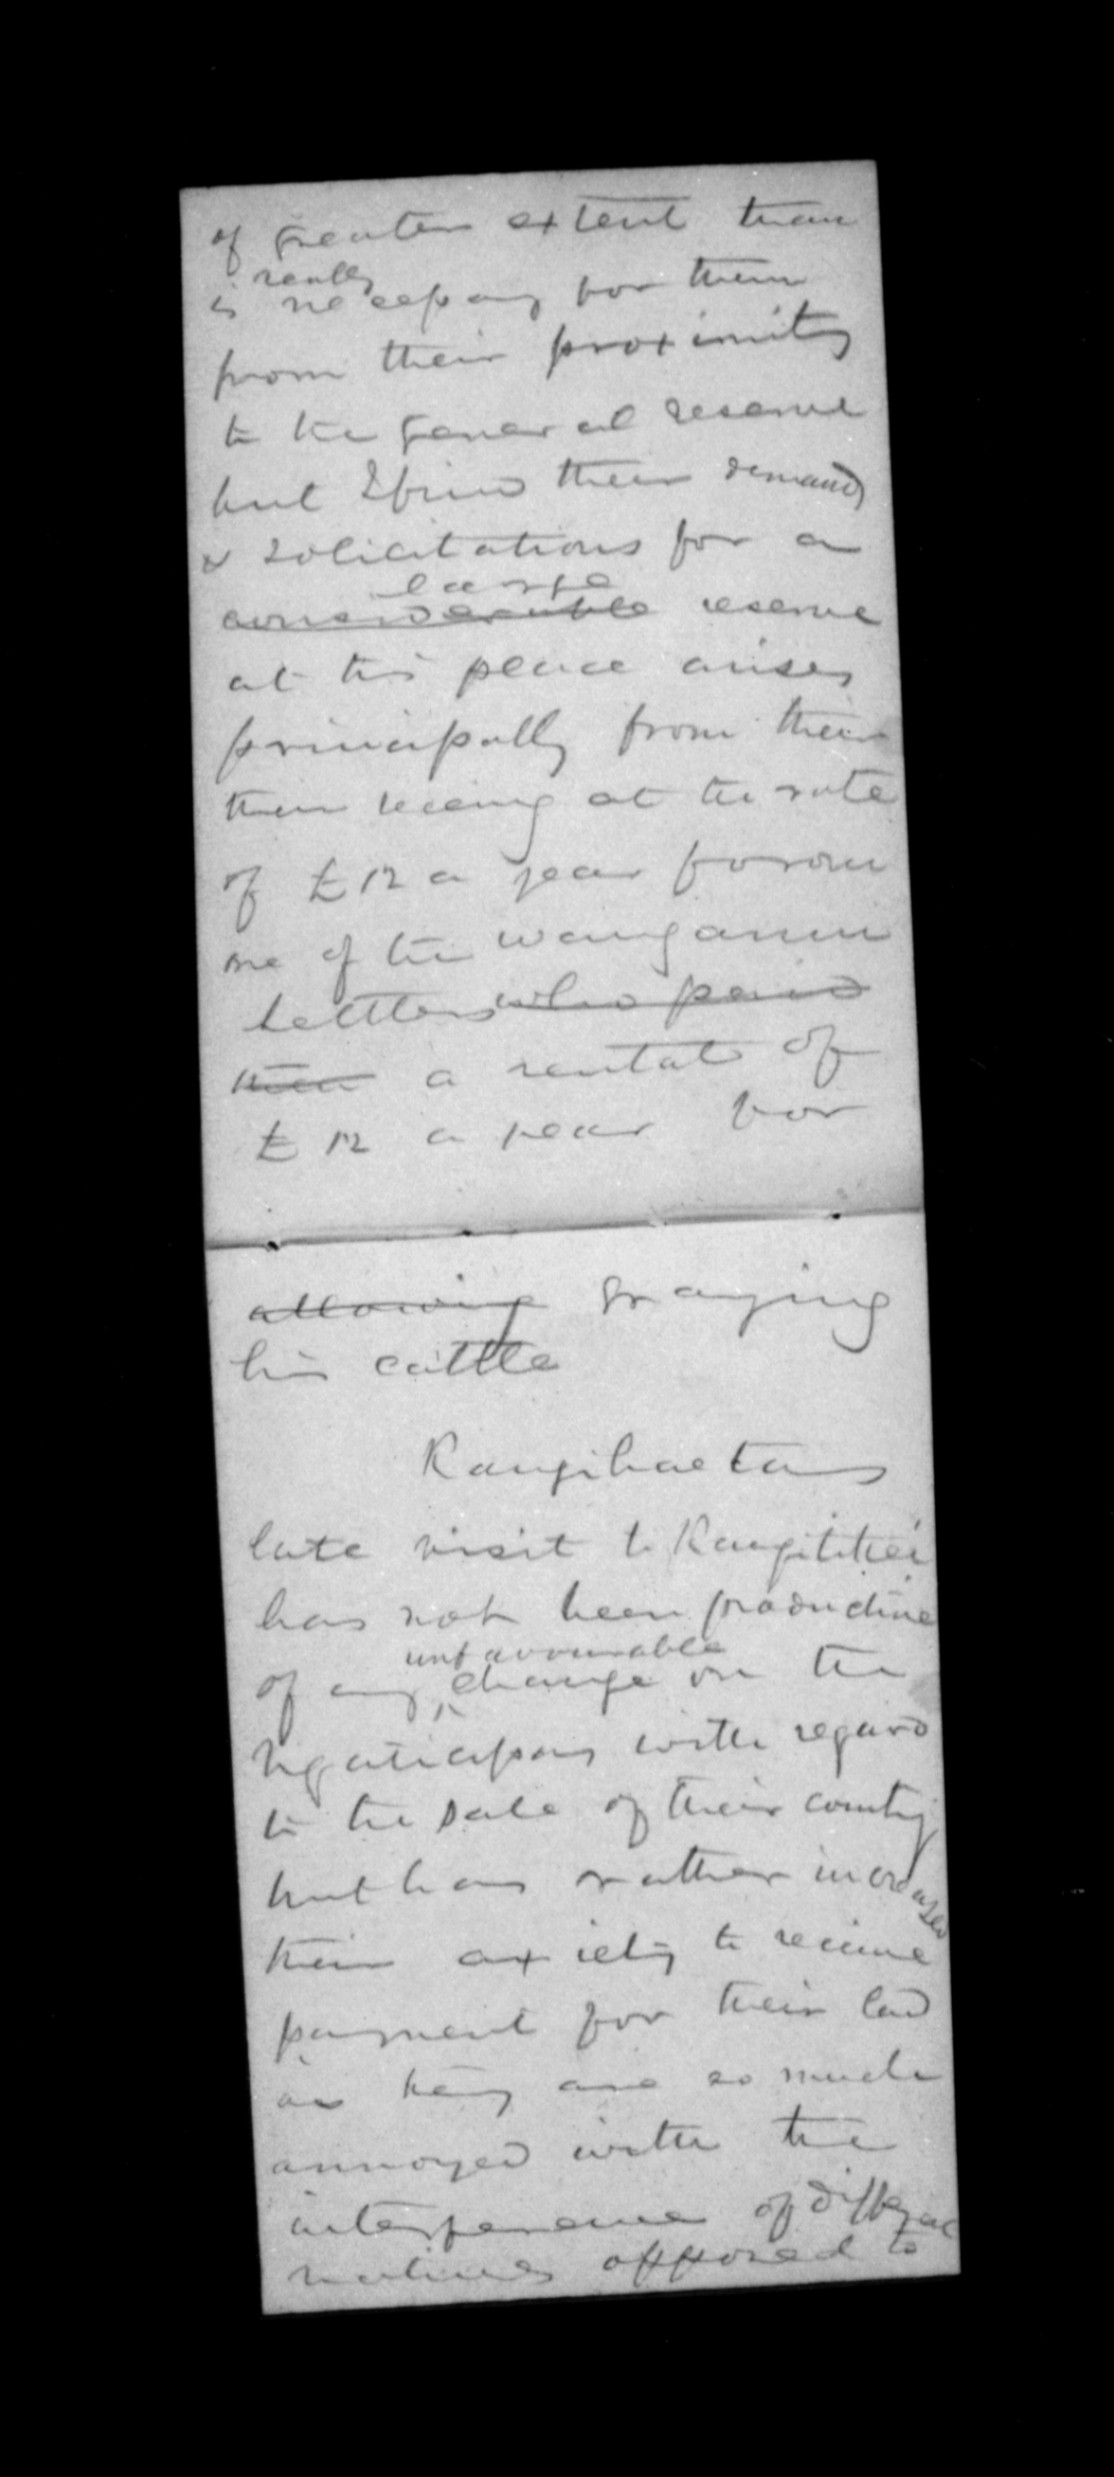 of greater extent than
really
is necessary for them
from their proximity
to the general reserve
but I find their demands
& solicitations for a
large
considerable reserve
at this place arises
principally from their
their being at the rate
of £12 a year from
one of the Wanganui
settlers who paid
them a rental of
£12 a year for
allowing grazing
his cattle
Rangihaetas
late visit to Rangitikei
has not been productive
unfavourable
of any change on the
Ngatiapas with regard
to the sale of their country
but has rather increased
their axiety to receive
payment for their land
as they are so much
annoyed with the
interference of different
natives opposed to